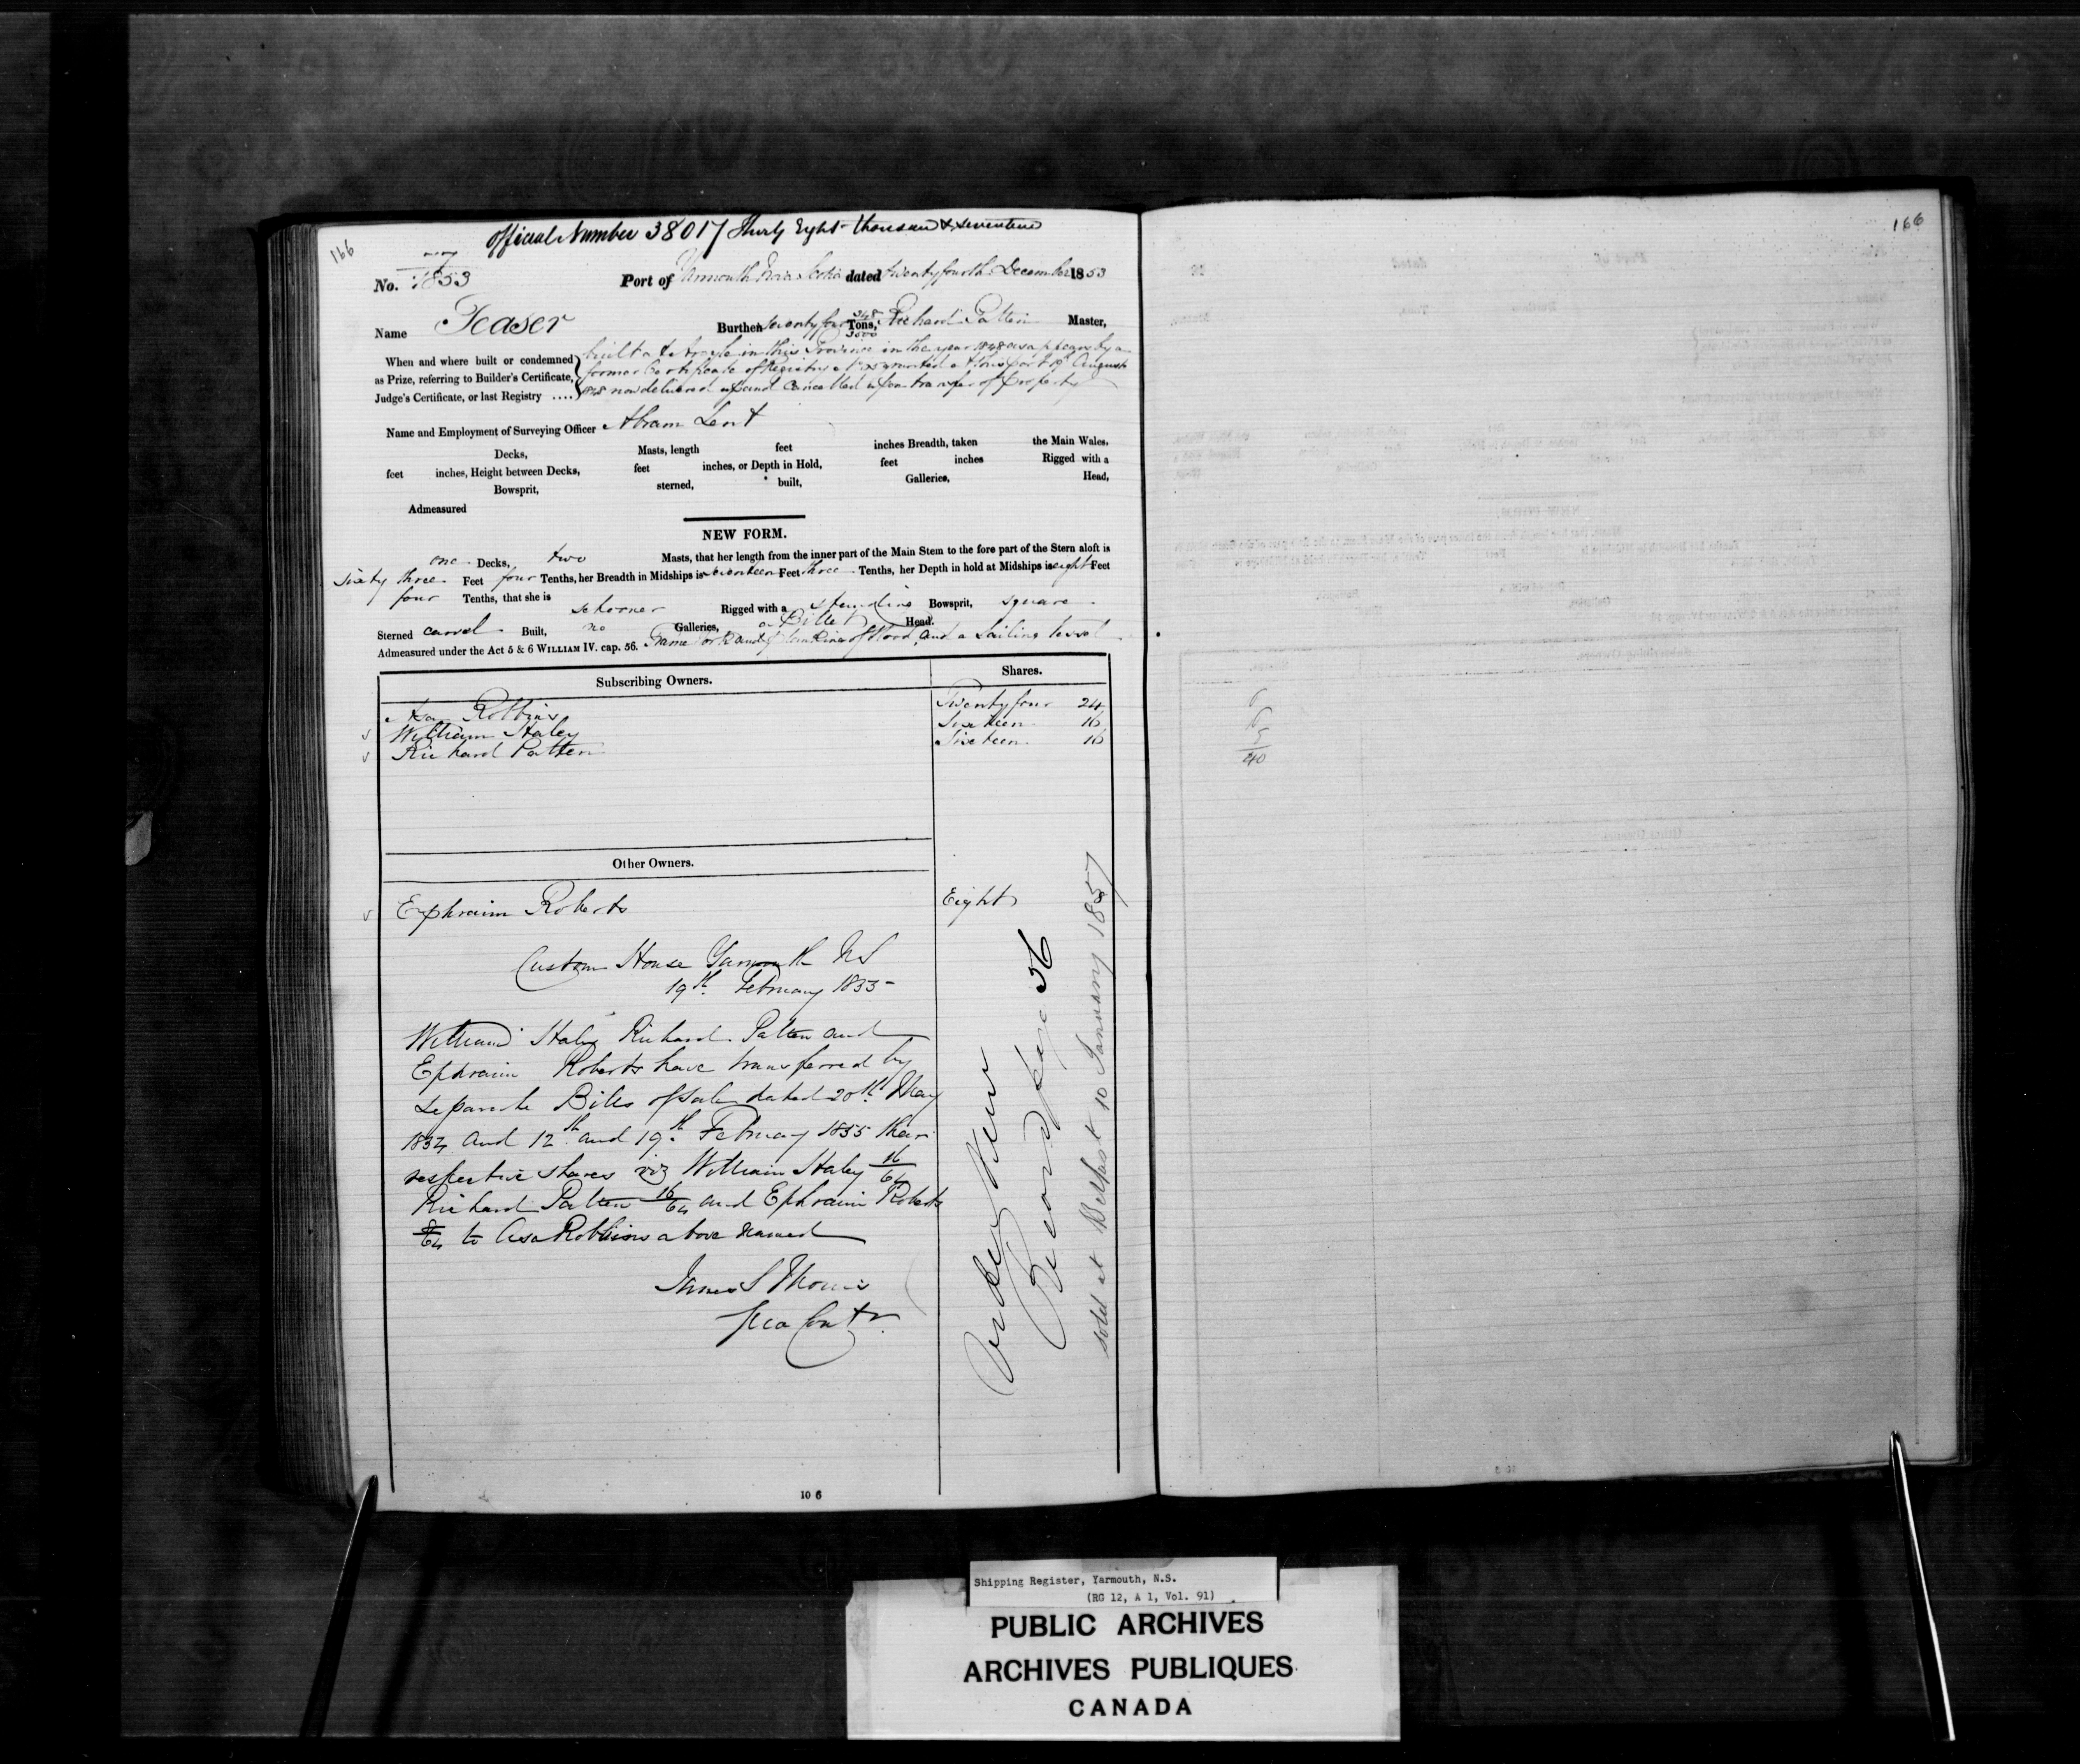 166
Official Number 38017 Thirty Eight thousand & seventeen
No. 77/1853 Port of Yarmouth Nova Scotia dated twenty fourth December 1853
Name Teaser Burthen Seventy four 348/3500 Tons, Richard Patten Master,
When and where built or condemned as Prize, referring to Builder's Certificate, Judge's Certificate, or last Registry ....
built at Argyle in this Province in the year 1848 as appears by a
former Certificate of Registry granted at this port August
1848 now delivered up and Cancelled upon transfer of property
Name and Employment of Surveying Officer Abram Lent
Decks, Masts, length feet inches Breadth, taken the Main Wales,
feet inches, Height between Decks, feet inches, or Depth in Hold, feet inches Rigged with a
Bowsprit, sterned, built, Galleries, Head,
Admeasured
NEW FORM.
one Decks, two Masts, that her length from the inner part of the Main Stem to the fore part of the Stern aloft is
Sixty three Feet four Tenths, her Breadth in Midships is seventeen Feet three Tenths, her Depth in hold at Midships is eight Feet
four Tenths, that she is schooner Rigged with a standing Bowsprit, square
Sterned carvel Built, no Galleries, a Billet Head.
Admeasured under the Act 5 & 6 WILLIAM IV. cap. 56. Frame work and planking of Wood, and a Sailing vessel
Subscribing Owners. Shares.
Asa Robbins Twenty four 24
William Haley Sixteen 16
Richard Patten Sixteen 16
Other Owners.
Ephraim Roberts Eight
Custom House Yarmouth NS
19th February 1855
William Haley Richard Patten and
Ephraim Roberts have transferred by
separate Bills of Sale dated 20th May
1854 and 12th and 19th February 1855 their
respective shares viz William Haley 16/64
Richard Patten 16/64 and Ephraim Roberts
8/64 to Asa Robbins above named
James S
Contr.
Registered New
Record page 36
sold at Belfast 10 January 1857
10 6
166
6
5
40
Shipping Register, Yarmouth, N.S.
(RG 12, A 1, Vol. 91)
PUBLIC ARCHIVES
ARCHIVES PUBLIQUES
CANADA